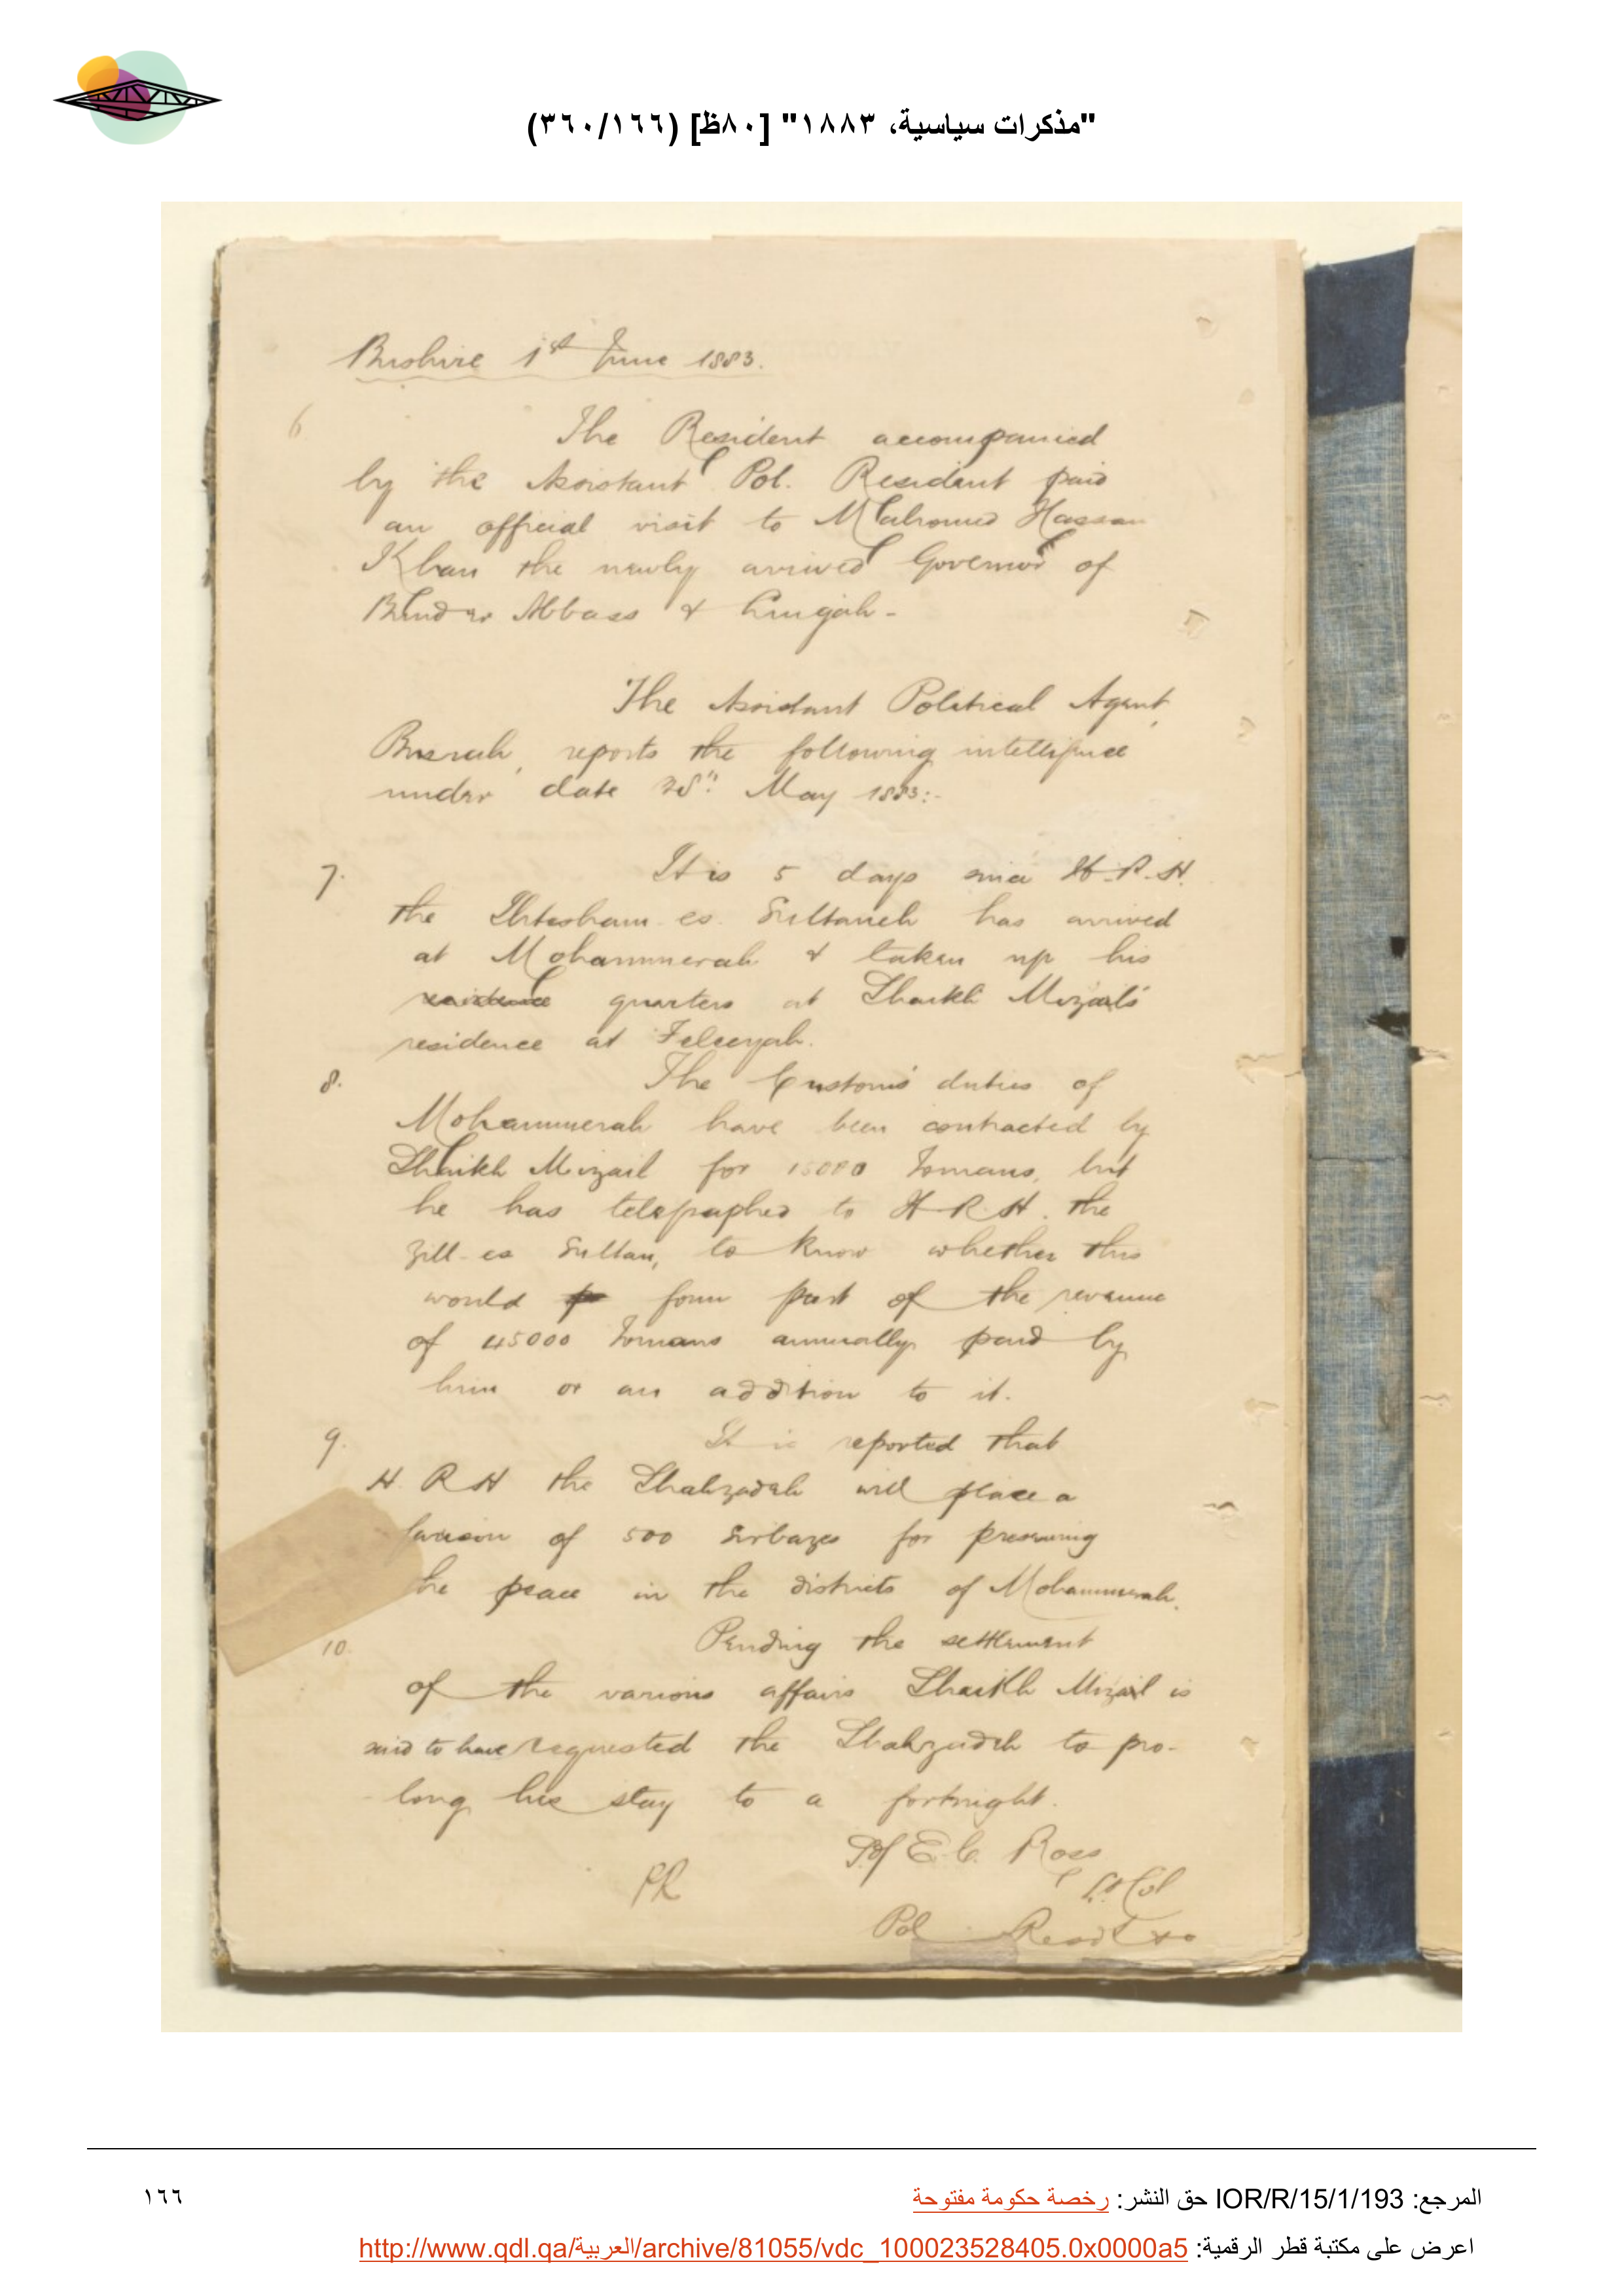 "مذكرات سياسية، ١٨٨٣" [٨٠ظ] (٣٦٠/١٦٦)
Bushire 1st June 1883.
6 The Resident accompanied
by the Assistant Pol. Resident paid
an official visit to Mahomed Hassan
Khan the newly arrived Governor of
Bunder Abbass & Lingah-
The Assistant Political Agent,
Busrah, reports the following intelligence
under date 28th May 1883:-
7. It is 5 days since H.R.H.
the Ihtesham es. Sultaneh has arrived
at Mohammerah & taken up his
residence quarters at Shaikh Mizail's
residence at Feleeyah.
8. The Customs' duties of
Mohammerah have been contracted by
Shaikh Mizail for 15000 Tomans, but
he has telegraphed to H.R.H. the
Zill-es Sultan, to know whether this
would form part of the revenue
of 45000 Tomans annually paid by
him or an addition to it.
9. It is reported that
H.R.H the Shahzadeh will place a
garrison of 500 Sirbazes for preserving
the peace in the districts of Mohammerah.
10. Pending the settlement
of the various affairs Shaikh Mizail is
said to have requested the Shahzadeh to pro-
-long his stay to a fortnight.
E.C. Ross
Lt Col
PR
Pol Resdt
المرجع: IOR/R/15/1/193 حق النشر: رخصة حكومة مفتوحة
١٦٦
اعرض على مكتبة قطر الرقمية: http://www.qdl.qa/العربية/archive/81055/vdc_100023528405.0x0000a5